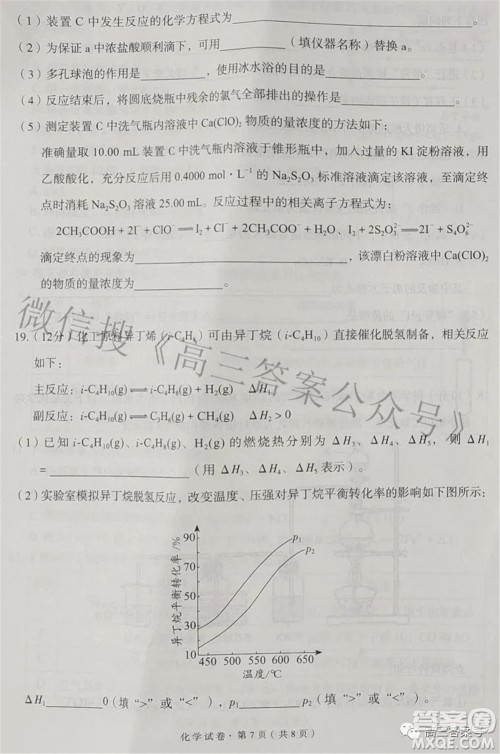 (1)装置C中发生反应的化学方程式为____________。
(2)为保证a中浓盐酸顺利滴下,可用____________(填仪器名称)替换a。
(3)多孔球泡的作用是________,使用冰水浴的目的是____________。
(4)反应结束后,将圆底烧瓶中残余的氯气全部排出的操作是____________。
(5)测定装置C中洗气瓶内溶液中Ca(ClO)₂物质的量浓度的方法如下:
准确量取10.00 mL装置C中洗气瓶内溶液于锥形瓶中,加入过量的KI淀粉溶液,用
乙酸酸化,充分反应后用0.4000 mol·L⁻¹的Na₂S₂O₃标准溶液滴定该溶液,至滴定终
点时消耗Na₂S₂O₃溶液25.00 mL。反应过程中的相关离子方程式为:
2CH₃COOH+2I⁻+ClO⁻══I₂+Cl⁻+2CH₃COO⁻+H₂O、I₂+2S₂O₃²⁻══2I⁻+S₄O₆²⁻
滴定终点的现象为____________,该漂白粉溶液中Ca(ClO)₂
的物质的量浓度为____________。
19.(12分)化工原料异丁烯(i-C₄H₈)可由异丁烷(i-C₄H₁₀)直接催化脱氢制备,相关反应
如下:
主反应:i-C₄H₁₀(g)⇌i-C₄H₈(g)+H₂(g) ΔH₁
副反应:i-C₄H₁₀(g)⇌C₃H₆(g)+CH₄(g) ΔH₂>0
(1)已知i-C₄H₁₀(g)、i-C₄H₈(g)、H₂(g)的燃烧热分别为ΔH₃、ΔH₄、ΔH₅,则ΔH₁
=____________(用ΔH₃、ΔH₄、ΔH₅表示)。
(2)实验室模拟异丁烷脱氢反应,改变温度、压强对异丁烷平衡转化率的影响如下图所示:
异丁烷平衡转化率/%
90
70
50
30
10
p₁
p₂
450 500 550 600 650
温度/℃
ΔH₁________0(填“>”或“<”),p₁________p₂(填“>”或“<”)。
化学试卷·第7页(共8页)
微信搜《高三答案公众号》
高三答案
答案圈
MXQE.COM